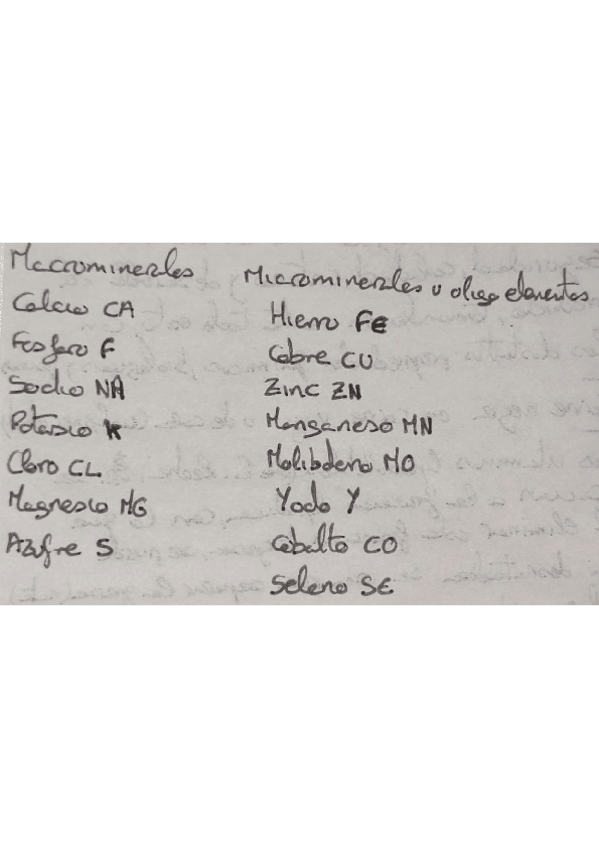 Macrominerales
Calcio CA
Fosforo F
Sodio NA
Potasio K
Cloro CL
Magnesio MG
Azufre S
Microminerales u oligo elementos
Hierro FE
Cobre CU
Zinc ZN
Manganeso MN
Molibdeno MO
Yodo Y
Cobalto CO
Seleno SE